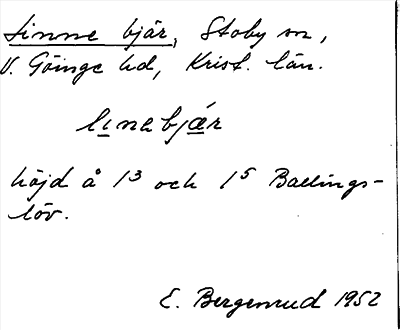 Linne bjär, Stoby sn,
V. Göinge hd, Krist. län.
linebjär
höjd å 1³ och 1⁵ Ballings-
löv.
E. Bergenrud 1952